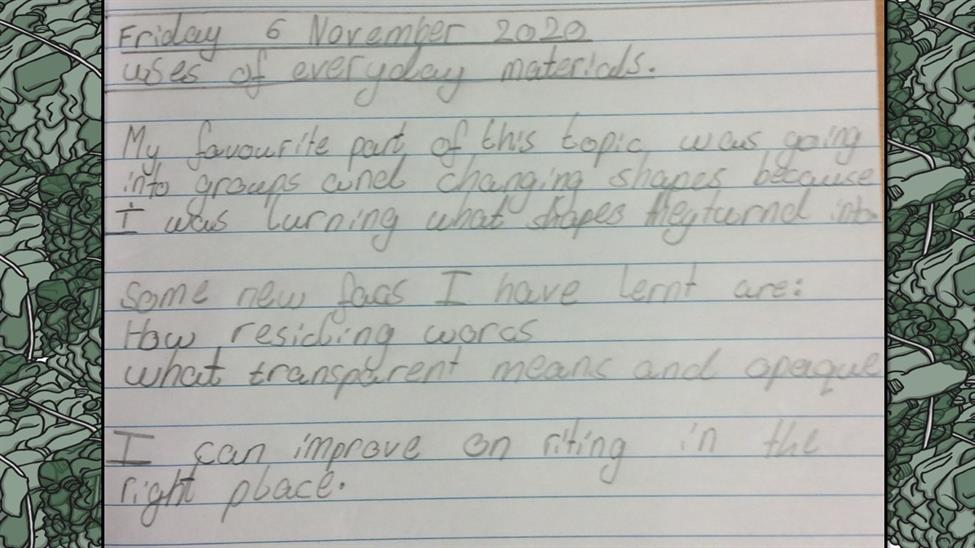 Friday 6 November 2020
uses of everyday materials.
My favourite part of this topic was going
into groups and changing shapes because
I was lurning what shapes they turnd into
Some new facs I have lernt are:
How resicling worcs
what transparent means and opaque
I can improve on riting in the
right place.